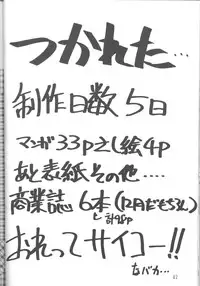 つかれた…
制作日数 5日
マンガ33pさし絵4p
あと表紙その他‥‥
商業誌 6本(12月だもちろん)
と計98p
おれってサイコー!!
なバカ…
47